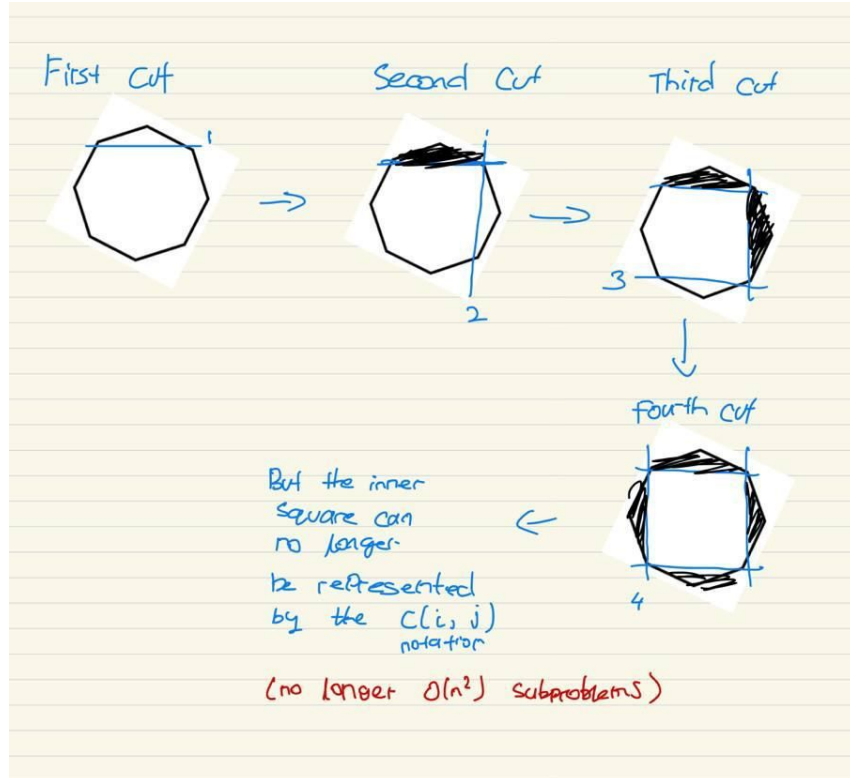 First Cut
Second Cut
Third cut
1
1
2
3
fourth cut
4
But the inner
square can
no longer
be represented
by the C(i, j)
notation
(no longer O(n²) subproblems)